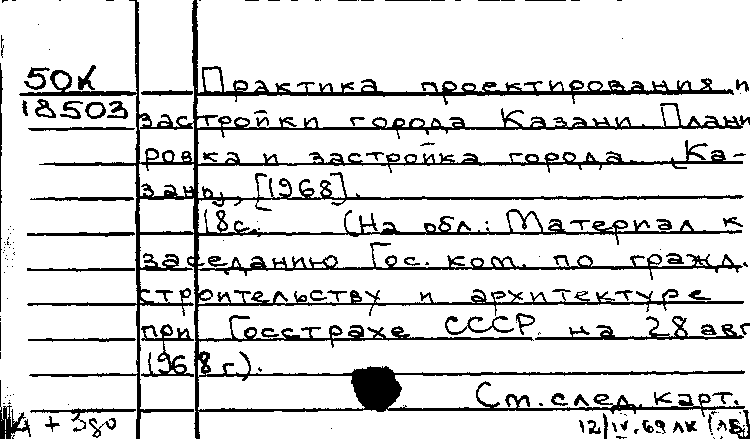 50К
18503
Практика проектирования и
застройки города Казани. Плани
ровка и застройка города. Ка-
зань, [1968].
18с. (На обл.: Материал к
заседанию Гос. ком. по гражд.
строительству и архитектуре
при Госстрахе СССР на 28 авг
1968 г).
См. след. карт.
12/IV.69 ЛК